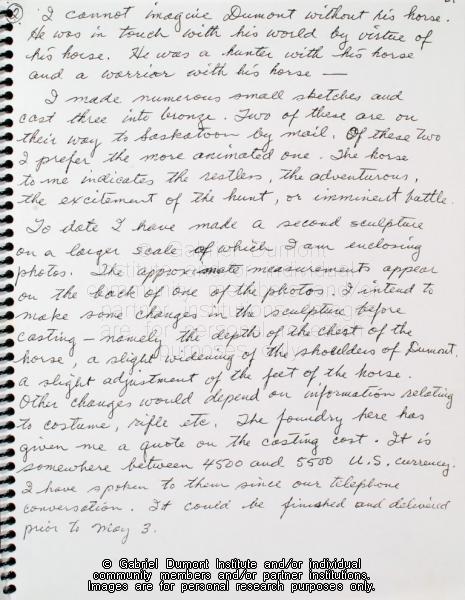 ② I cannot imagine Dumont without his horse.
He was in touch with his world by virtue of
his horse. He was a hunter with his horse
and a warrior with his horse —
I made numerous small sketches and
cast three into bronze. Two of these are on
their way to Saskatoon by mail. Of these two
I prefer the more animated one. The horse
to me indicates the restless, the adventurous,
the excitement of the hunt, or imminent battle.
To date I have made a second sculpture
on a larger scale of which I am enclosing
photos. The approximate measurements appear
on the back of one of the photos. I intend to
make some changes in the sculpture before
casting – namely the depth of the chest of the
horse, a slight widening of the shoulders of Dumont.
a slight adjustment of the feet of the horse.
Other changes would depend on information relating
to costume, rifle etc. The foundry here has
given me a quote on the casting cost. It is
somewhere between 4500 and 5500 U.S. currency.
I have spoken to them since our telephone
conversation. It could be finished and delivered
prior to May 3.
© Gabriel Dumont Institute and/or individual
community members and/or partner institutions.
Images are for personal research purposes only.